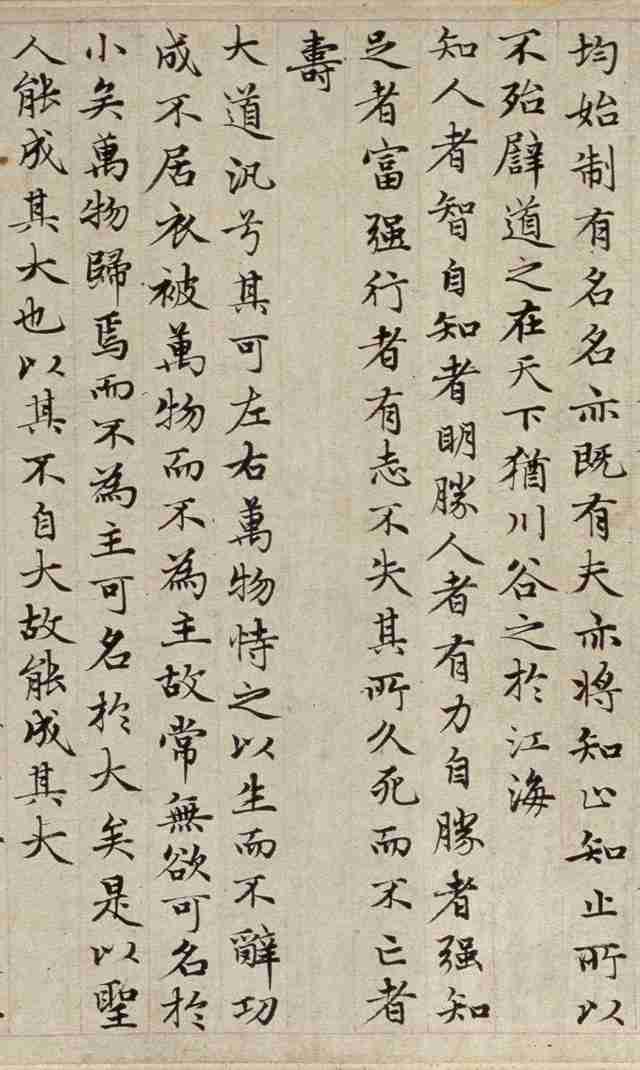 均始制有名名亦既有夫亦將知止知止所以
不殆譬道之在天下猶川谷之於江海
知人者智自知者明勝人者有力自勝者强知
足者富强行者有志不失其所久死而不亡者
壽
大道汎兮其可左右萬物恃之以生而不辭功
成不居衣被萬物而不為主故常無欲可名於
小矣萬物歸焉而不為主可名於大矣是以聖
人能成其大也以其不自大故能成其大